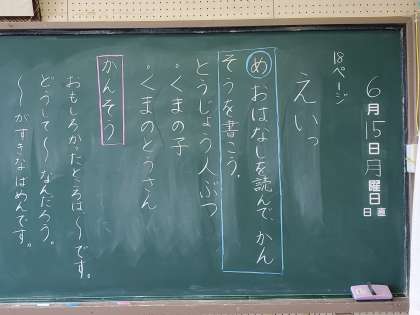 6月15日月曜日
日直
18ページ
えいっ
め おはなしを読んで、かん
そうを書こう。
とうじょう人ぶつ
・くまの子
・くまのとうさん
かんそう
おもしろかったところは〜です。
どうして〜なんだろう。
〜がすきなばめんです。